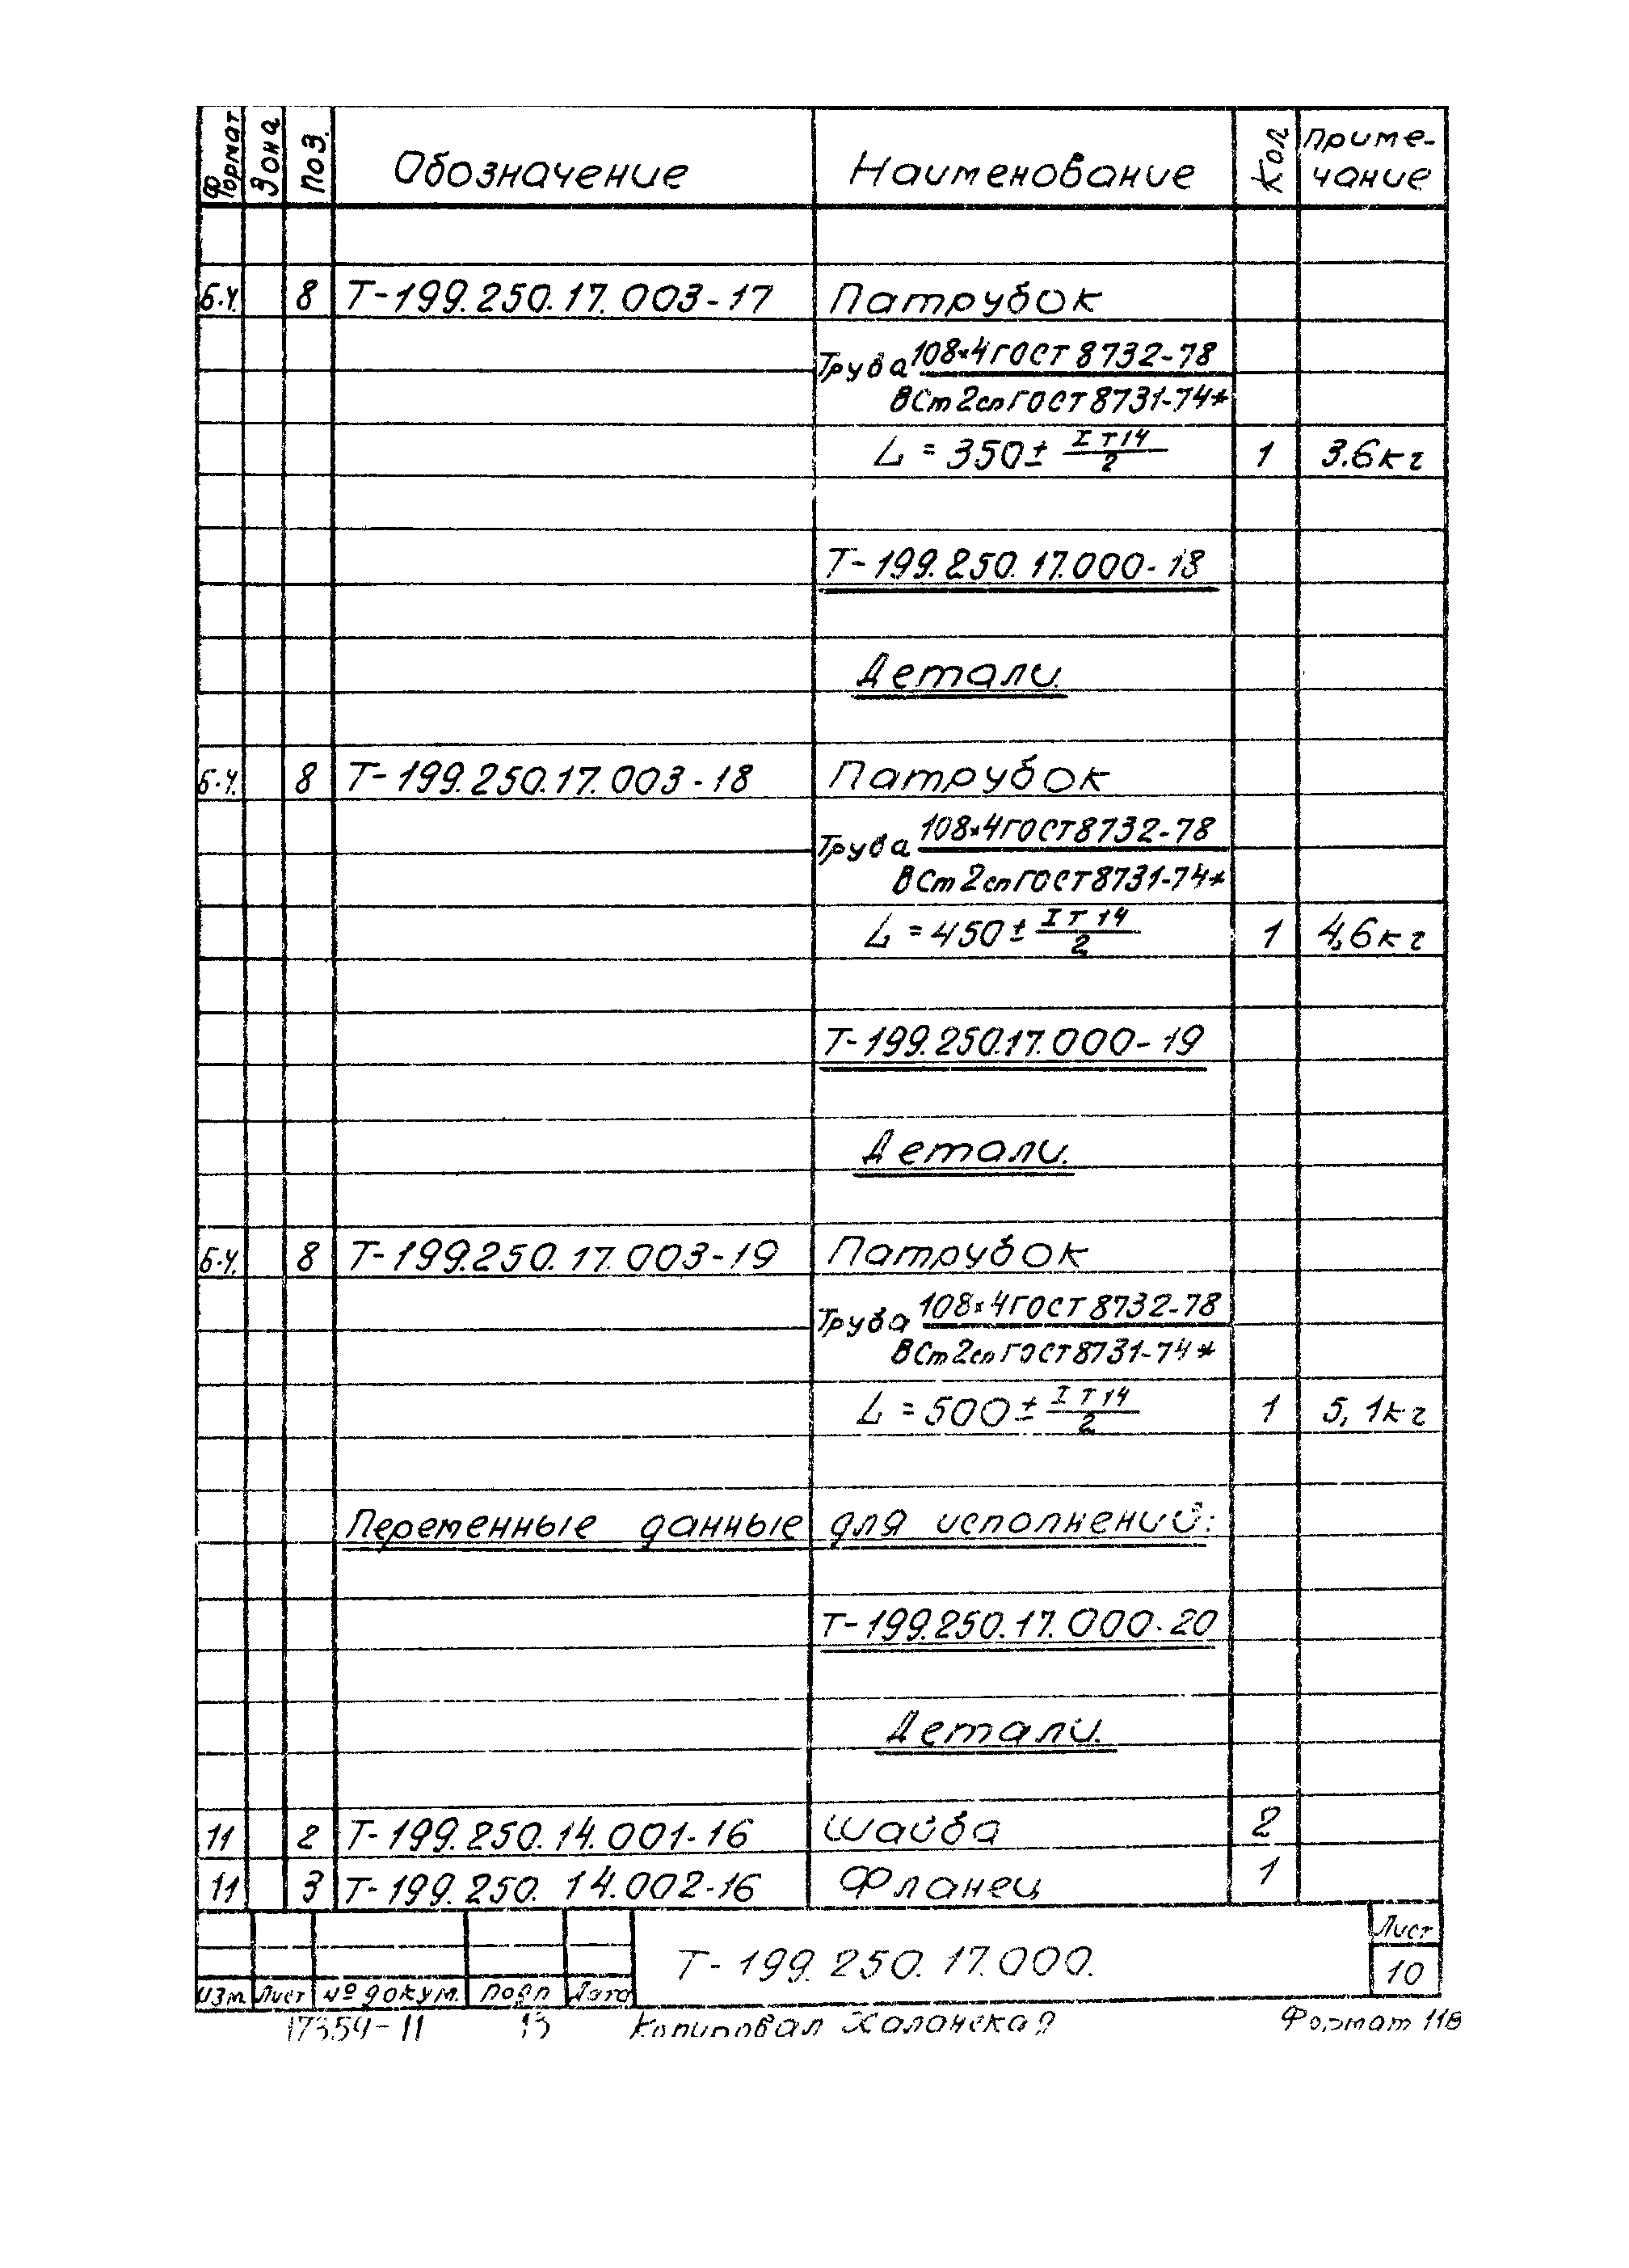 Формат Зона Поз. Обозначение Наименование Кол Приме-
чание
Б.Ч. 8 Т-199.250.17.003-17 Патрубок
Труба 108×4 ГОСТ 8732-78
ВСт2сп ГОСТ 8731-74*
L = 350 ± IT14/2 1 3.6кг
Т-199.250.17.000-18
Детали.
Б.Ч. 8 Т-199.250.17.003-18 Патрубок
Труба 108×4 ГОСТ 8732-78
ВСт2сп ГОСТ 8731-74*
L = 450 ± IT14/2 1 4,6кг
Т-199.250.17.000-19
Детали.
Б.Ч. 8 Т-199.250.17.003-19 Патрубок
Труба 108×4 ГОСТ 8732-78
ВСт2сп ГОСТ 8731-74*
L = 500 ± IT14/2 1 5,1кг
Переменные данные для исполнений:
Т-199.250.17.000-20
Детали.
11 2 Т-199.250.14.001-16 Шайба 2
11 3 Т-199.250.14.002-16 Фланец 1
Т-199.250.17.000.
Лист
10
Изм. Лист № докум. Подп Дата
17354-11 13 Копировал Халанская Формат 11В